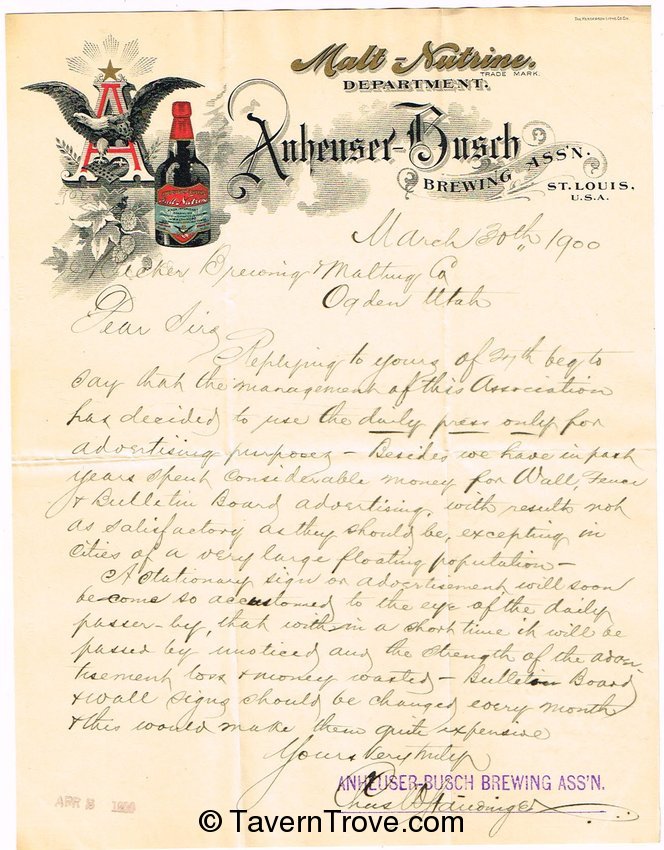 THE HENDERSON LITHO. CO. CIN.
Malt-Nutrine.
TRADE MARK.
DEPARTMENT.
Anheuser-Busch
BREWING ASS'N.
ST. LOUIS,
U.S.A.
A
Malt-Nutrine
March 30th, 1900
Becker Brewing & Malting Co
Ogden Utah
Dear Sirs
Replying to yours of 24th beg to
say that the management of this Association
has decided to use the daily press only for
advertising purposes - Besides we have in past
years spent considerable money for Wall, Fence
& Bulletin Board advertising, with results not
as satisfactory as they should be, excepting in
Cities of a very large floating population -
A stationary sign or advertisement will soon
become so accustomed to the eye of the daily
passer-by, that with-in a short time it will be
passed by unoticed and the strength of the adver-
tisement loss & money wasted - Bulletin Board
& wall signs should be changed every month
& this would make them quite expensive
Yours Very truly
ANHEUSER-BUSCH BREWING ASS'N.
Chas
APR 3 1900
© TavernTrove.com